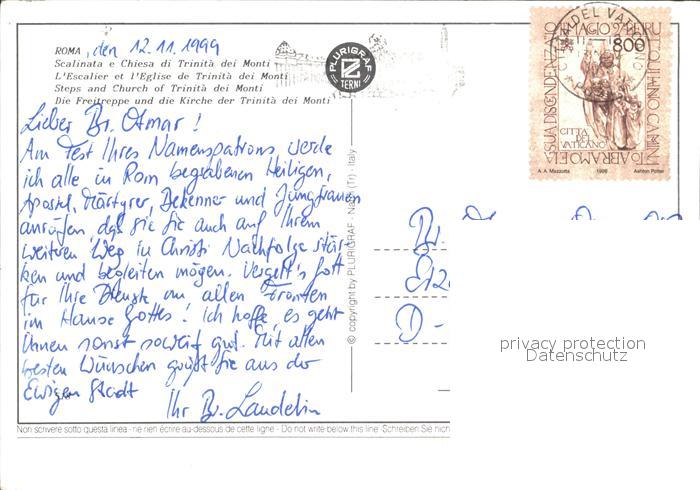 ROMA, den 12.11.1999
Scalinata e Chiesa di Trinità dei Monti
L'Escalier et l'Eglise de Trinità dei Monti
Steps and Church of Trinità dei Monti
Die Freitreppe und die Kirche der Trinità dei Monti
Lieber Br. Otmar!
Am Fest Ihres Namenspatrons werde
ich alle in Rom begrabenen Heiligen,
Apostel, Märtyrer, Bekenner und Jungfrauen
anrufen, daß sie Sie auch auf Ihrem
weiteren Weg in Christi Nachfolge stär-
ken und begleiten mögen. Vergelt's Gott
für Ihre Dienste an allen Fronten
im Hause Gottes! Ich hoffe, es geht
Ihnen sonst soweit gut. Mit allen
besten Wünschen grüßt Sie aus der
Ewigen Stadt
Ihr Br. Landelin
Non scrivere sotto questa linea - ne rien écrire au-dessous de cette ligne - Do not write below this line - Schreiben Sie nich
PLURIGRAF
TERNI
© copyright by PLURIGRAF - Narni (Tr) - Italy
800
CITTÀ
DEL
VATICANO
A. A. Mazzotta 1998 Ashton Potter
Br.
D -
privacy protection
Datenschutz